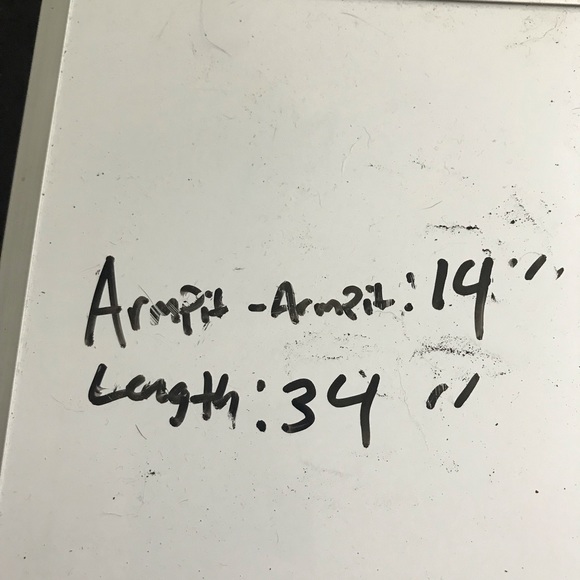 ArmPit - ArmPit: 14"
Length: 34"